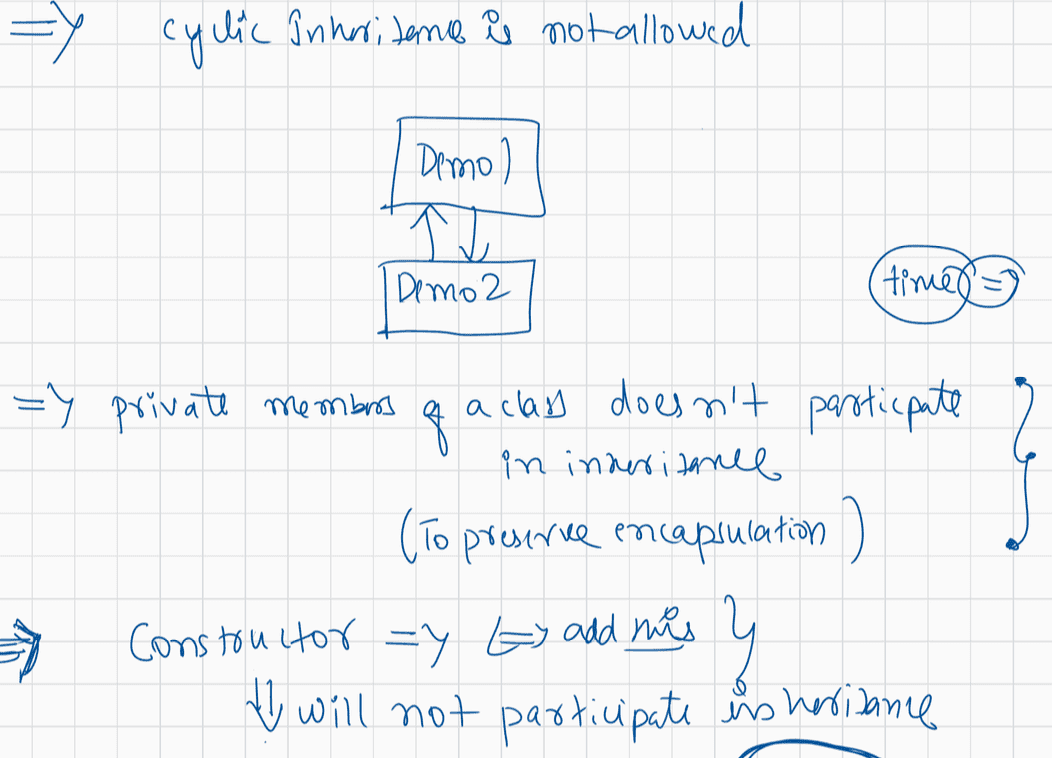 => cyclic Inheritance is not allowed
Demo1
Demo2
time =>
=> private members of a class doesn't particpate
in inheritance
(To preserve encapsulation)
=> Constructor => => add
will not participate inheritance